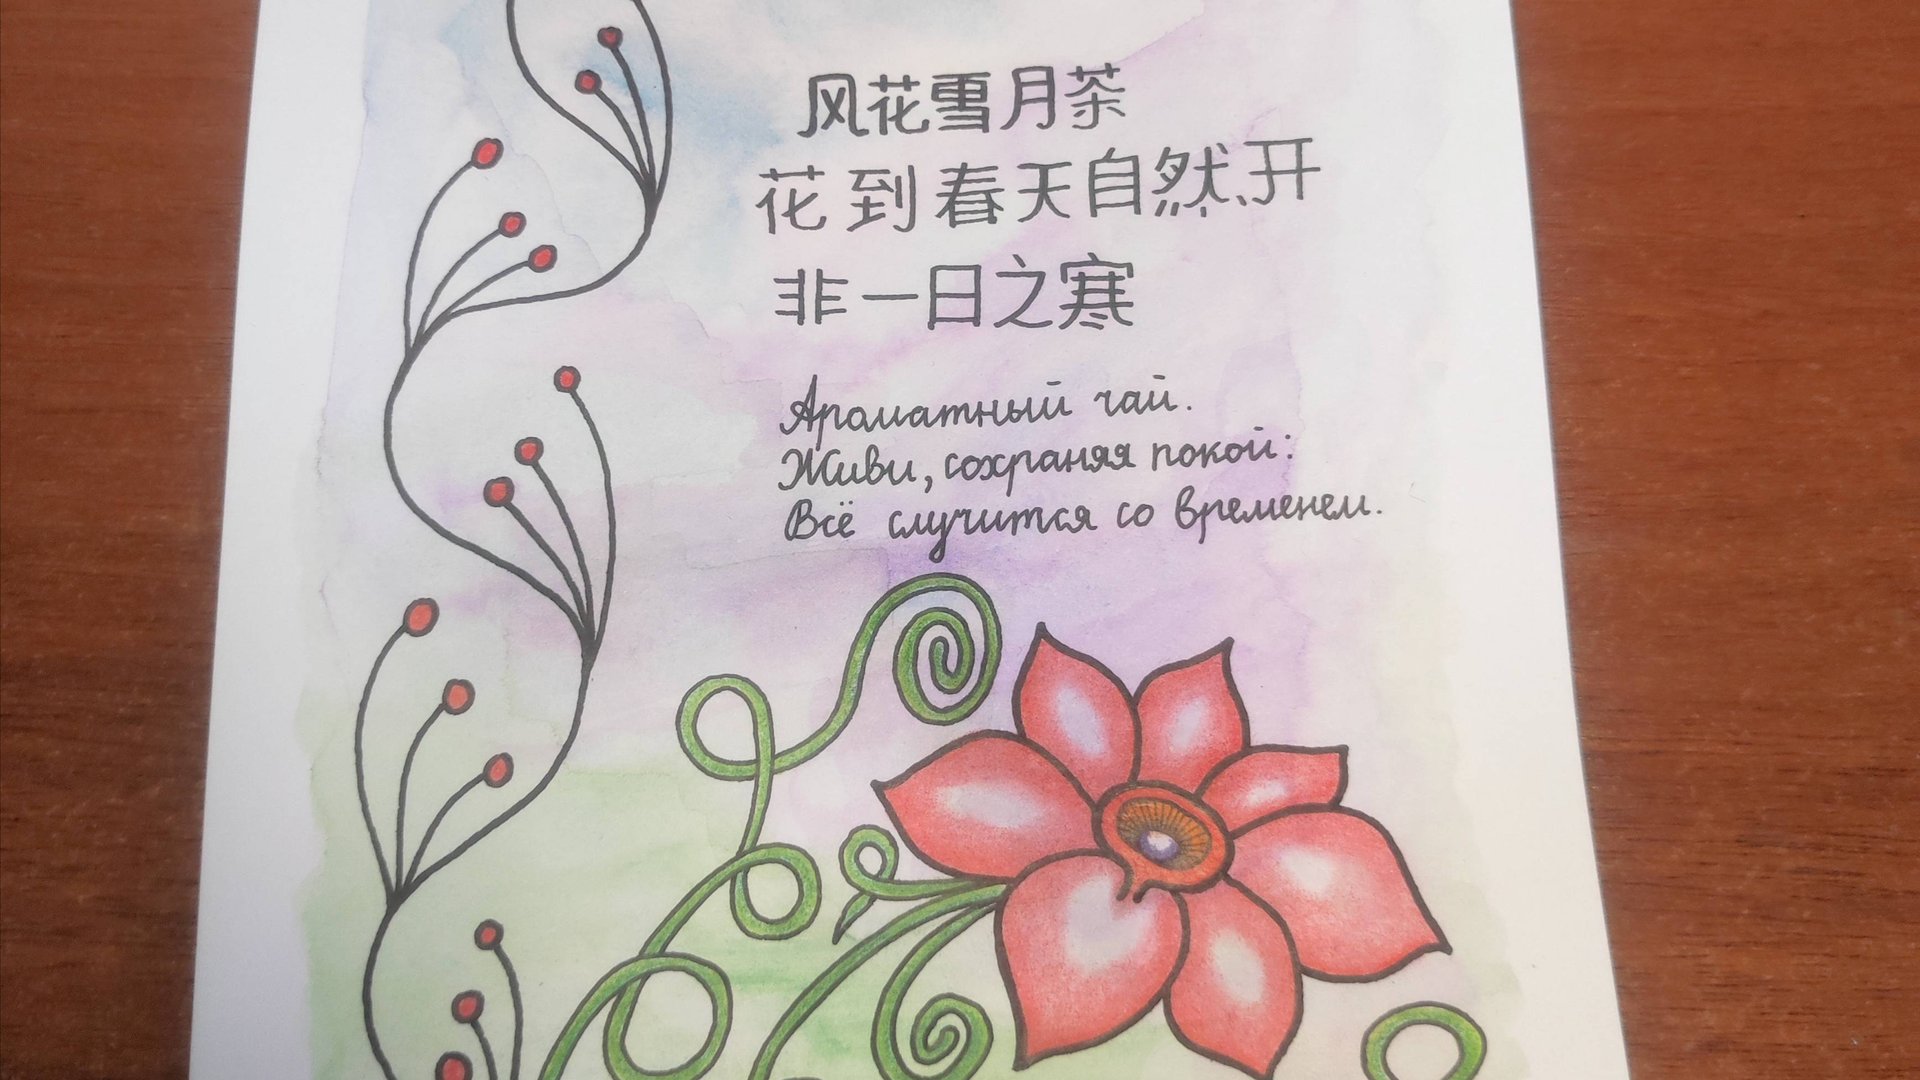 风花雪月茶
花到春天自然开
非一日之寒
Ароматный чай.
Живи, сохраняя покой:
Всё случится со временем.